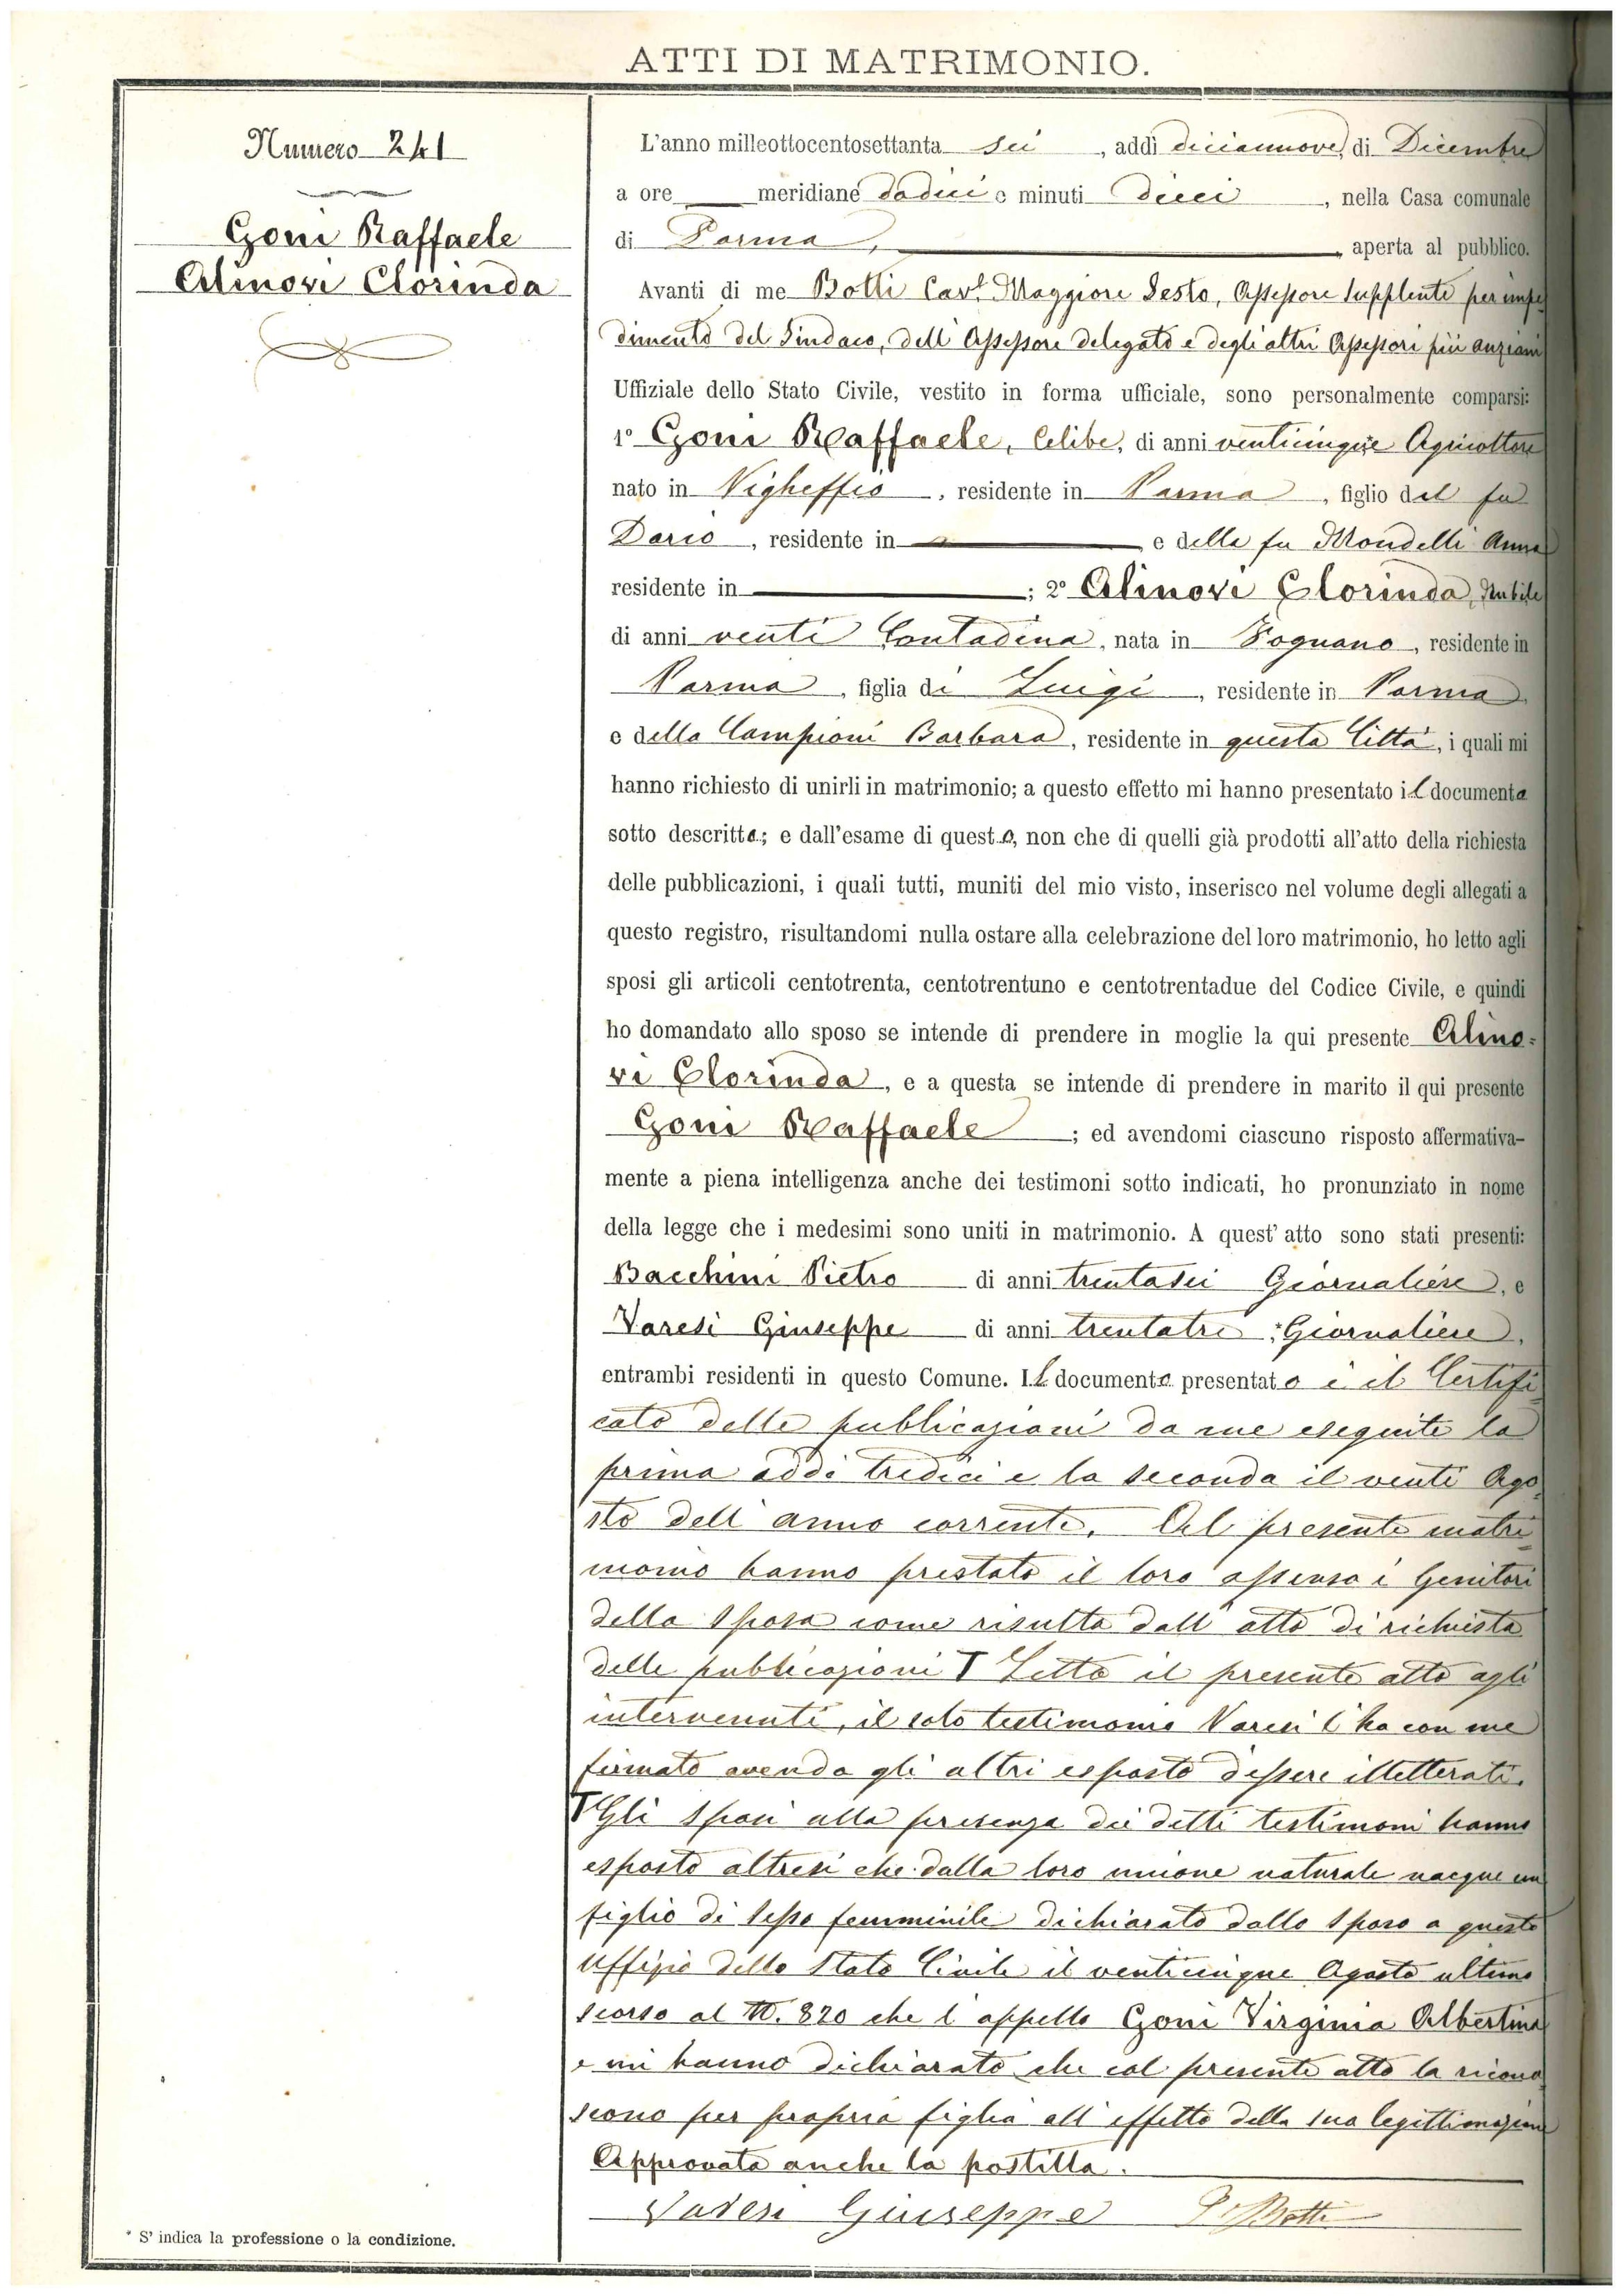 ATTI DI MATRIMONIO.
Numero 241
Goni Raffaele
Alinovi Clorinda
L'anno milleottocentosettanta sei, addì diciannove di Dicembre
a ore meridiane dodici e minuti dieci, nella Casa comunale
di Parma, aperta al pubblico.
Avanti di me Botti Cav.r Maggiore Sesto, Assessore Supplente per impe
dimento del Sindaco, dell'Assessore delegato e degli altri Assessori più anziani
Uffiziale dello Stato Civile, vestito in forma ufficiale, sono personalmente comparsi:
1° Goni Raffaele, Celibe, di anni venticinque Agricoltore
nato in Vigheffio, residente in Parma, figlio del fu
Dario, residente in e della fu Mondelli Anna
residente in ; 2° Alinovi Clorinda, Nubile
di anni venti Contadina, nata in Fognano, residente in
Parma, figlia di Luigi, residente in Parma,
e della Campioni Barbara, residente in questa Città, i quali mi
hanno richiesto di unirli in matrimonio; a questo effetto mi hanno presentato il documento
sotto descritto; e dall'esame di questo, non che di quelli già prodotti all'atto della richiesta
delle pubblicazioni, i quali tutti, muniti del mio visto, inserisco nel volume degli allegati a
questo registro, risultandomi nulla ostare alla celebrazione del loro matrimonio, ho letto agli
sposi gli articoli centotrenta, centotrentuno e centotrentadue del Codice Civile, e quindi
ho domandato allo sposo se intende di prendere in moglie la qui presente Alino=
vi Clorinda, e a questa se intende di prendere in marito il qui presente
Goni Raffaele; ed avendomi ciascuno risposto affermativa-
mente a piena intelligenza anche dei testimoni sotto indicati, ho pronunziato in nome
della legge che i medesimi sono uniti in matrimonio. A quest'atto sono stati presenti:
Bacchini Pietro di anni trentasei Giornaliere, e
Varesi Giuseppe di anni trentatre, Giornaliere,
entrambi residenti in questo Comune. Il documento presentato è il Certifi
cato delle pubblicazioni da me eseguite la
prima addì tredici e la seconda il venti Ago
sto dell'anno corrente. Al presente matri
monio hanno prestato il loro assenso i Genitori
della Sposa come risulta dall'atto di richiesta
delle pubblicazioni T Letto il presente atto agli
intervenuti, il solo testimonio Varesi l'ha con me
firmato avendo gli altri esposto d'essere illetterati.
T Gli Sposi alla presenza dei detti testimoni hanno
esposto altresì che dalla loro unione naturale nacque un
figlio di sesso femminile dichiarato dallo Sposo a questo
Uffizio dello Stato Civile il venticinque Agosto ultimo
scorso al N. 820 che l'appello Goni Virginia Albertina
e mi hanno dichiarato che col presente atto la ricono
scono per propria figlia all'effetto della sua legittimazione
Approvata anche la postilla.
Varesi Giuseppe Botti
* S'indica la professione o la condizione.